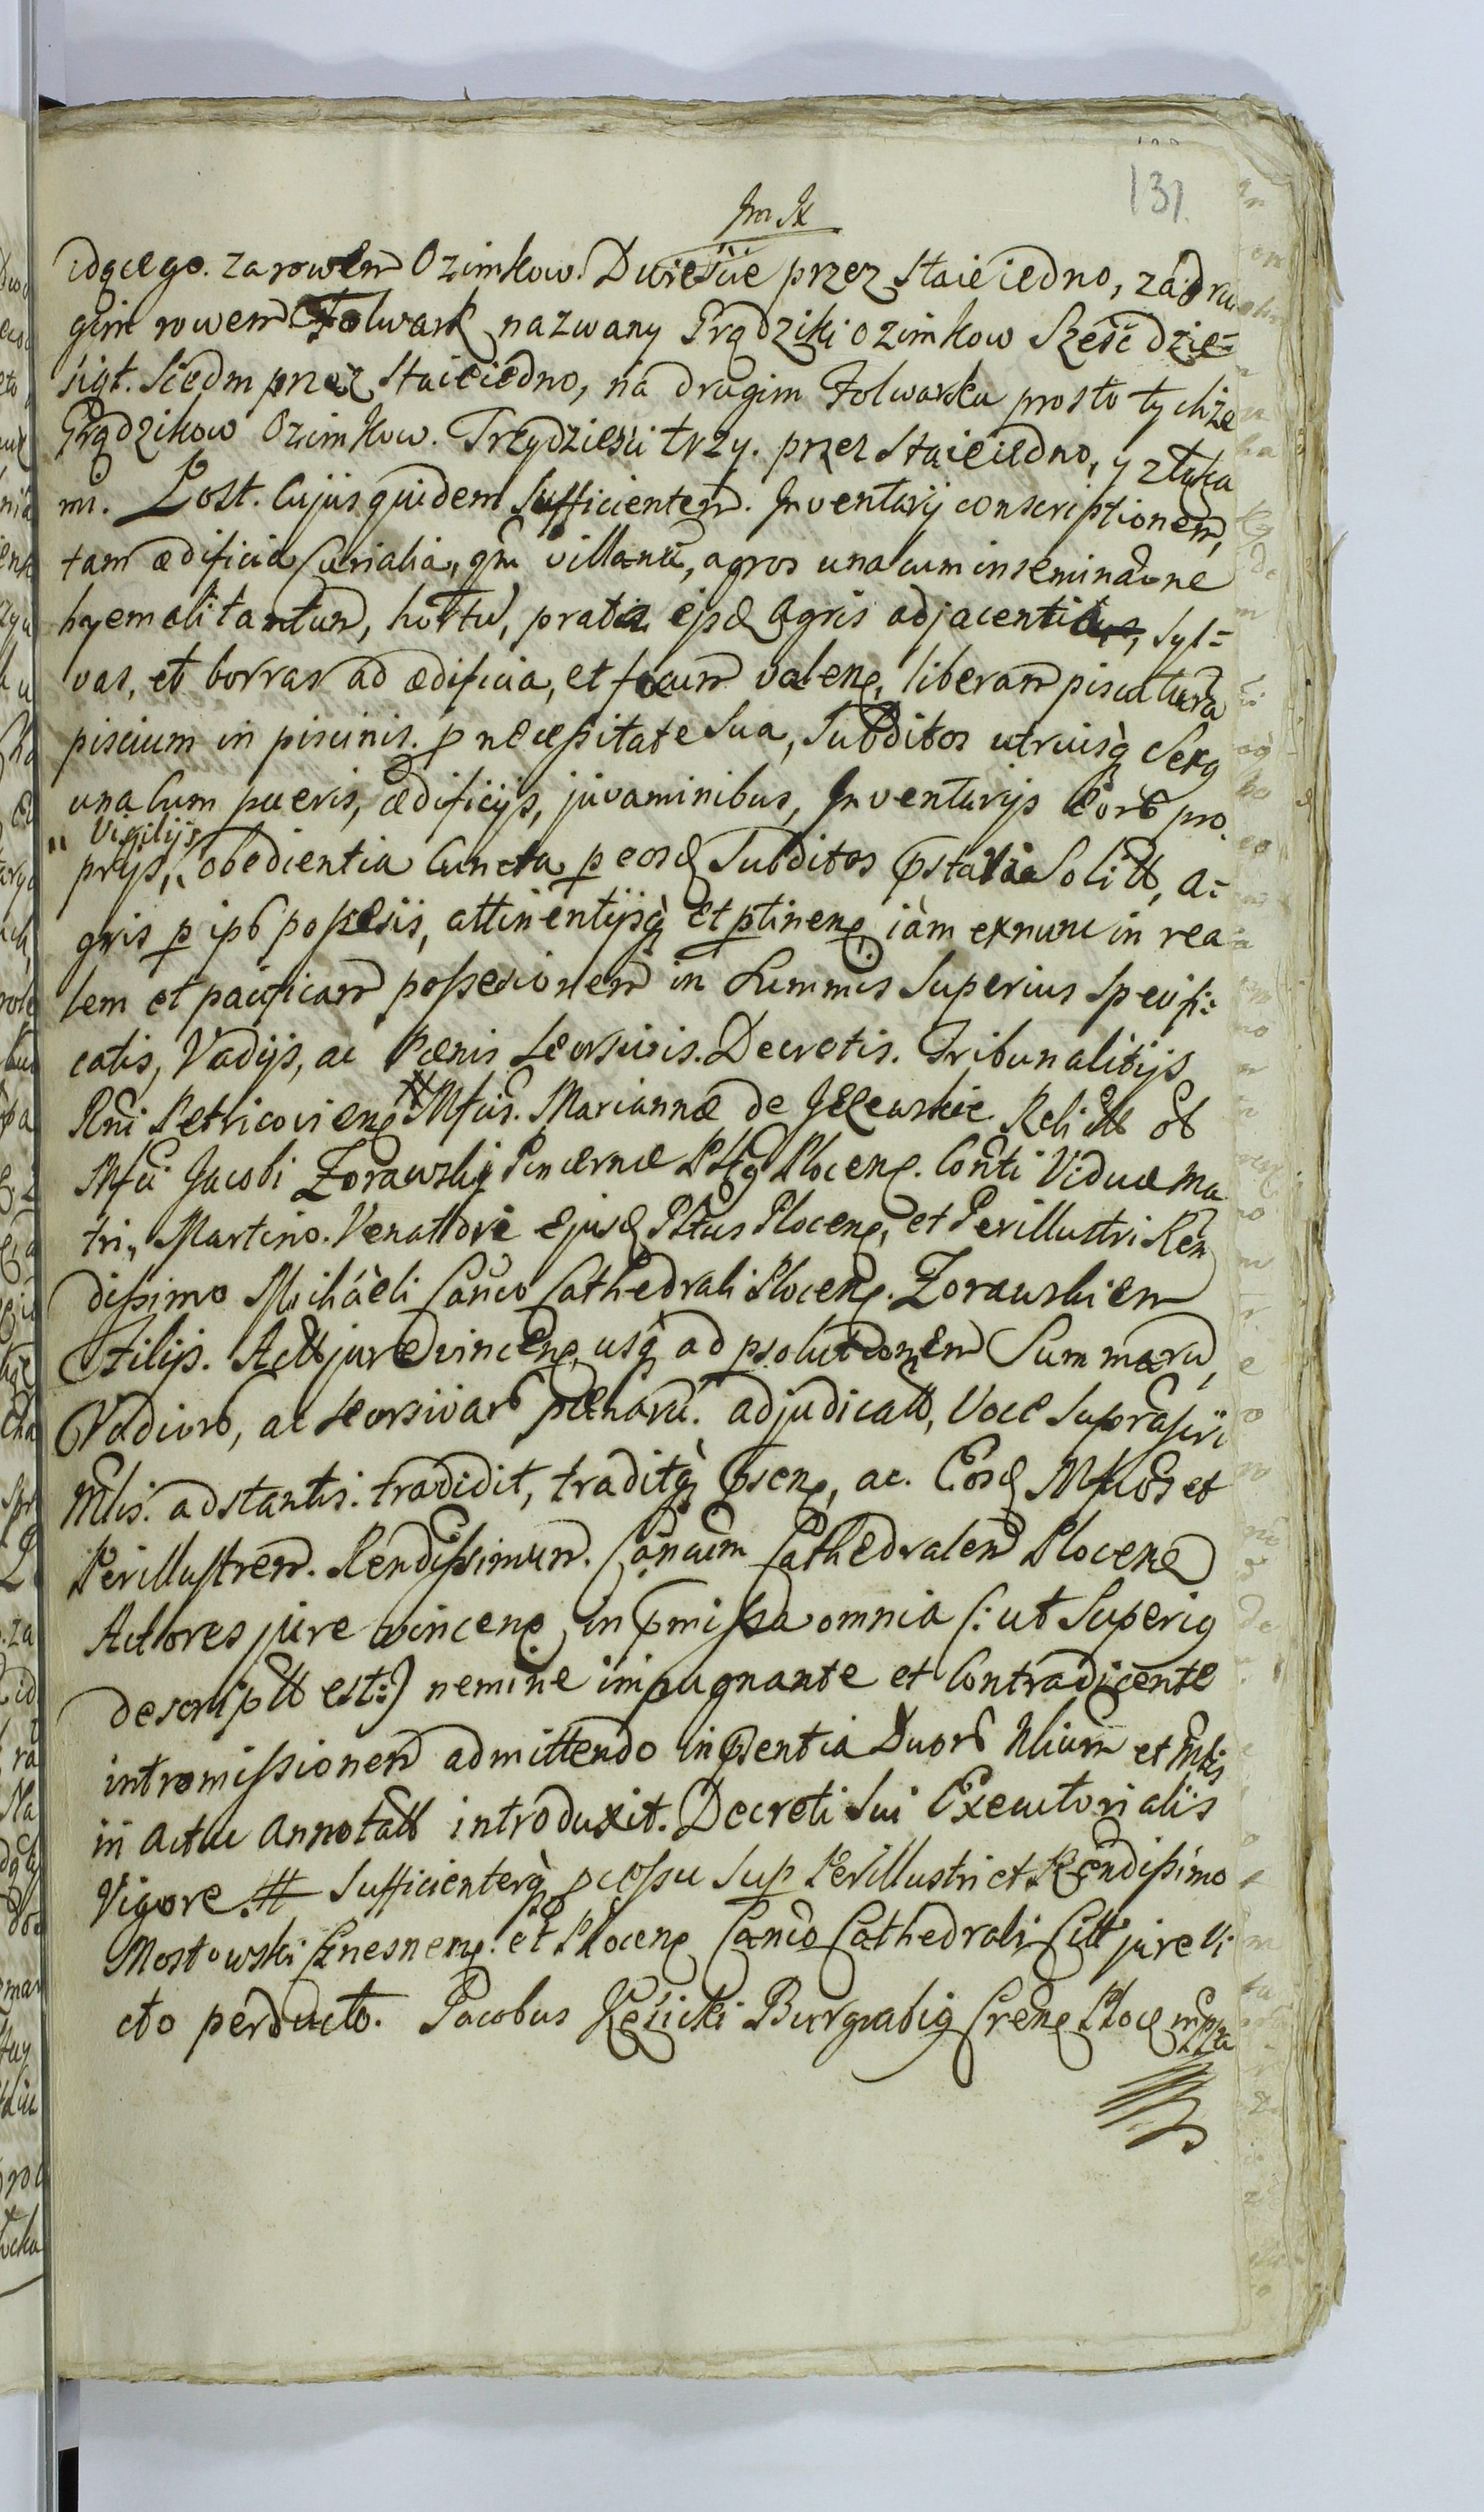 131
idącego. za rowem Ozimkow. Dwieście przez staie iedno, za dru
gim rowem Folwark nazwany Prądziki ozimkow Sześć dzie=
siąt. Siedm przez Staie iedno, na drugim Folwarku prosto tychże
Prądzikow Ozimkow. Trzydzieści trzy. przez Staie iedno, y z łąka
mi. Post. Cujus quidem Sufficientem. Inventarij conscriptionem,
tam ædificia Curialia, qm villana, agros una cum inseminaône
hyemali tantum, hortu, prata ejsd agris adjacentia, syl=
vas, et borras ad ædificia, et focum valens, liberam piscatura
piscium in piscinis. p necessitate Sua, Subditos utriusq̀ Sexg
una Cum pueris, ædificijs, juvaminibus, Inventarijs Eorb pro
„ Vigilijs
prijs, „ obedientia Cuncta p eosd Subditos pstari Solitt, a=
gris p ipb possessis, attinentijsq̀ et ptinens iàm exnunc in rea=
lem et pacificam possessionem in Summis Superius Specifi=
catis, Vadijs, ac Pænis Seorsivis. Decretis. Tribunalitijs
Rni Petricoviens Mfiis. Mariannæ de Relictt ob
Mfci Jacobi Zorawski Pincernæ Plocens. Conti Viduæ Ma
tri„ Martino. Venattori Ejusd Pttus Plocens, et Perillustri Ren
dissimo Michaèli Canco Cathedrali Plocens. Zorawskiem
Filijs. Actt jurevincens, usq̀ ad psolutionem Summaru,
Vadiorb, ac Seorsivarb pænaru. adjudicatt, Voce Suprascri
Mlis. adstantis. tradidit, traditq̀ psens, ac. Eosd Mfcos et
Perillustrem. Rendissimum. Cancum Cathedralem Plocens
Actores jure vincens, in pmissa omnia (: ut Superig
descriptt est:) nemine impugnante et Contradicente
intromissionem admittendo in psentia Duorb Nlium et Mlis
in actu annotatt introduxit. Decreti Sui Executorialis
Vigore. # Sufficienterq̀ pcessu Sup Perillustri et Rendissimo
Mostowski Gnesnens. et Plocens Canco Cathedrali Citt jure Vi
cto perducto. Jacobus Burgrabig Crens Ploc mppa